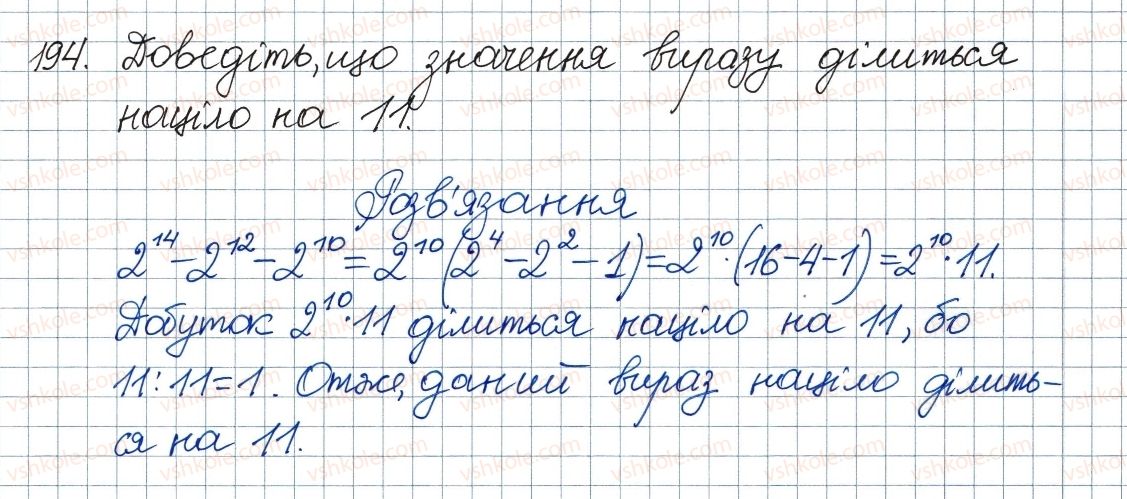 194. Доведіть, що значення виразу ділиться
націло на 11.
Розв'язання
2¹⁴-2¹²-2¹⁰=2¹⁰(2⁴-2²-1)=2¹⁰·(16-4-1)=2¹⁰·11.
Добуток 2¹⁰·11 ділиться націло на 11, бо
11:11=1. Отже, даний вираз націло ділить-
ся на 11.